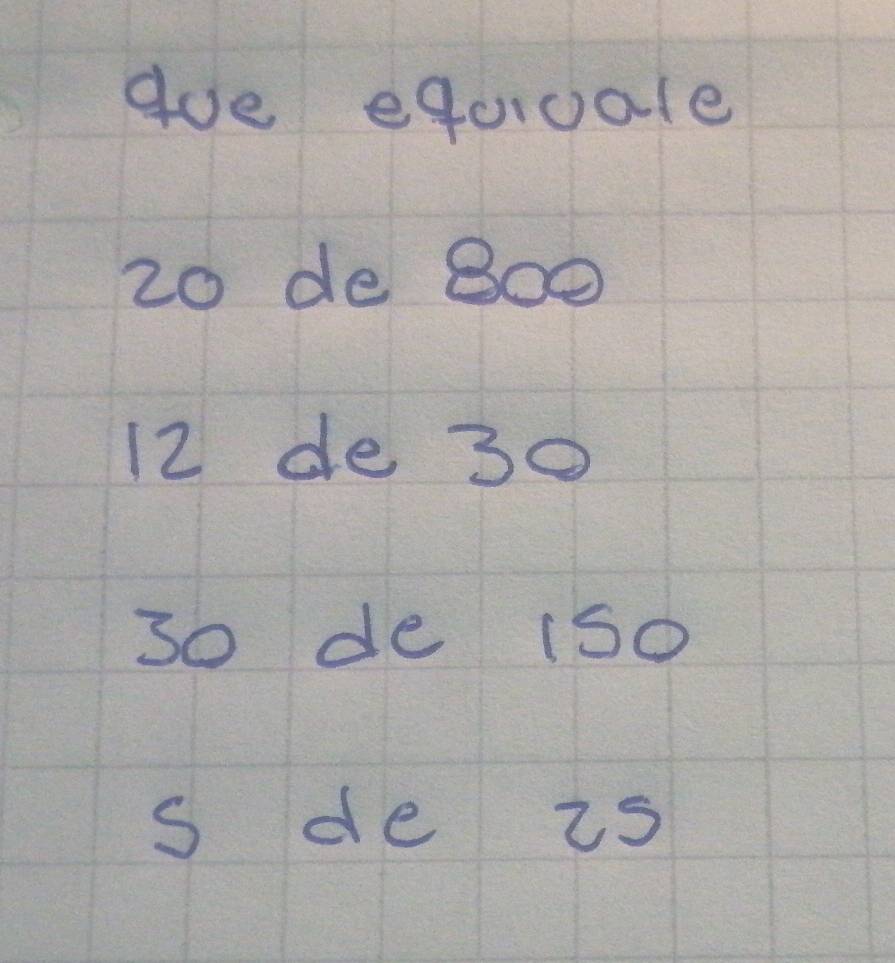 que equivale
20 de 800
12 de 30
30 de 150
5 de 25